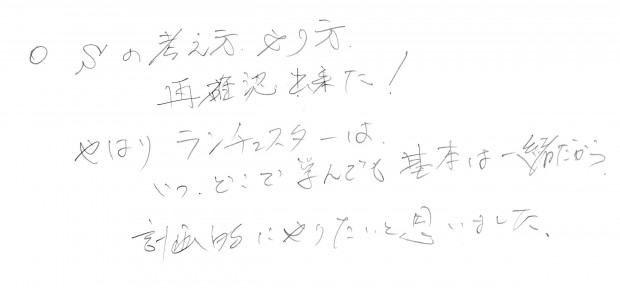 ○ Sの考え方、やり方、
再確認出来た!
やはり ランチェスターは、
いつ、どこで学んでも基本は一緒だから
計画的にやりたいと思いました。